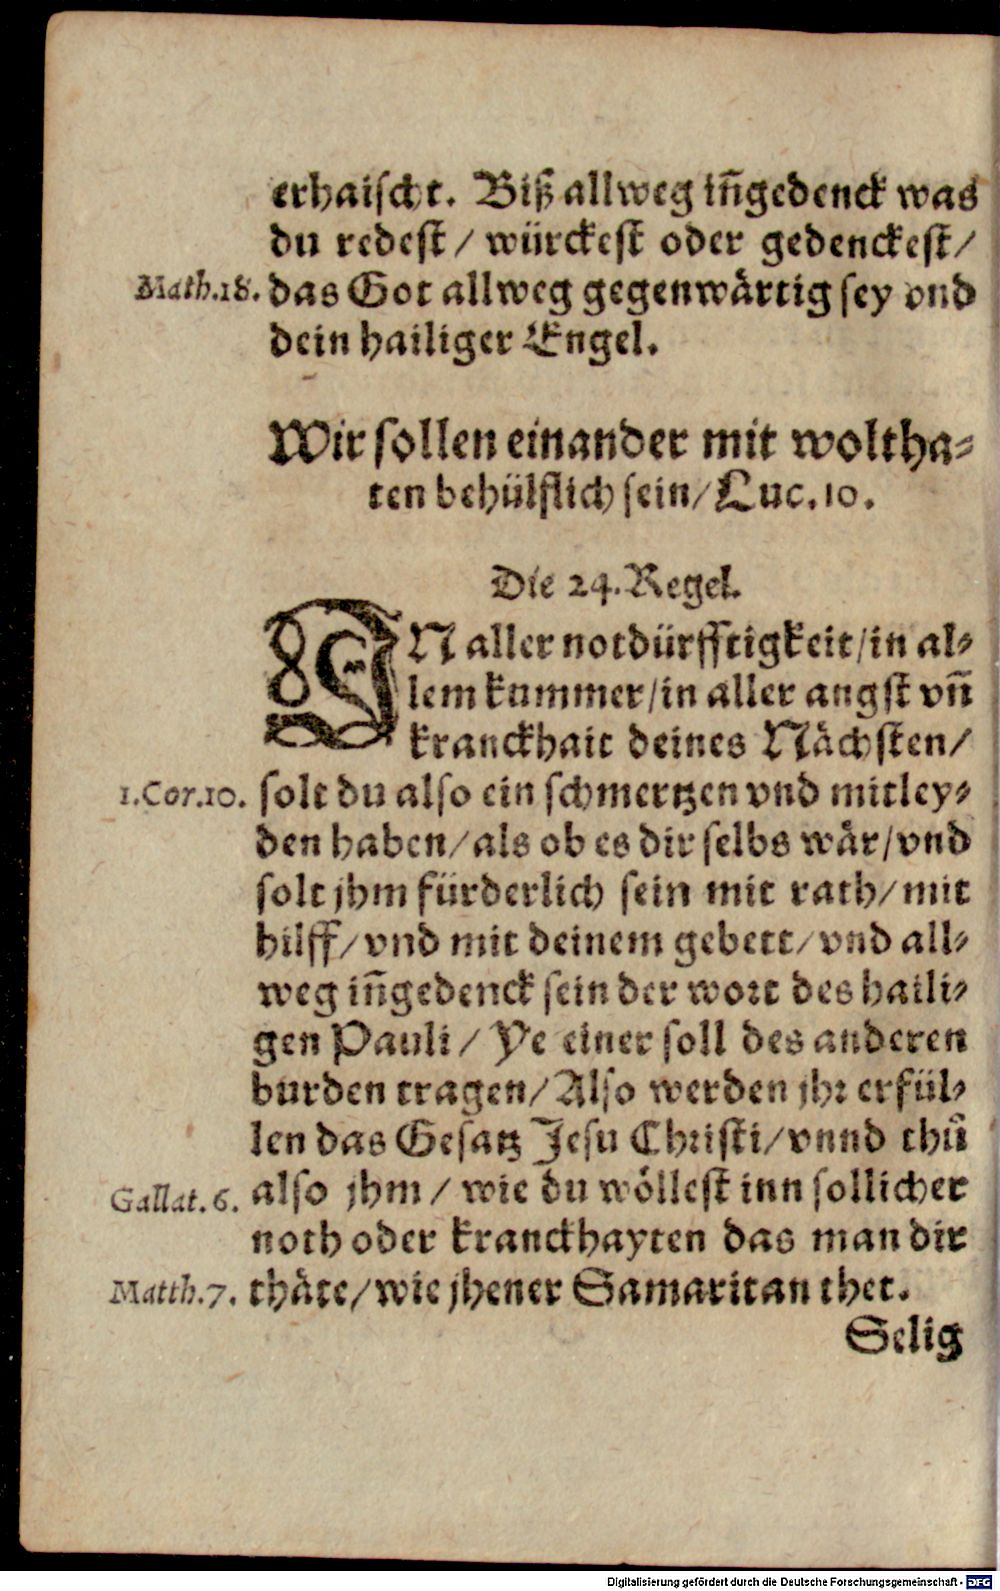 erhaischt. Biß allweg iñgedenck was
du redest / würckest oder gedenckest /
Math.18. das Got allweg gegenwärtig sey vnd
dein hailiger Engel.
Wir sollen einander mit woltha-
ten behülflich sein / Luc. 10.
Die 24. Regel.
IN aller notdürfftigkeit / in al-
lem kummer / in aller angst vñ
kranckhait deines Nächsten /
1.Cor.10. solt du also ein schmertzen vnd mitley-
den haben / als ob es dir selbs wär / vnd
solt jhm fürderlich sein mit rath / mit
hilff / vnd mit deinem gebett / vnd all-
weg iñgedenck sein der wort des haili-
gen Pauli / Ye einer soll des anderen
burden tragen / Also werden jhr erfül-
len das Gesatz Jesu Christi / vnnd thů
Gallat. 6. also jhm / wie du wöllest inn sollicher
noth oder kranckhayten das man dir
Matth. 7. thäte / wie jhener Samaritan thet.
Selig
Digitalisierung gefördert durch die Deutsche Forschungsgemeinschaft - DFG